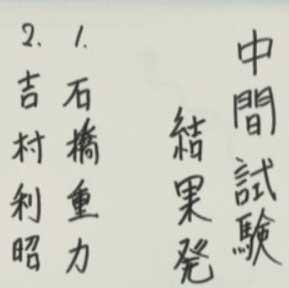 中間試験
結果発
1. 石橋重力
2. 吉村利昭